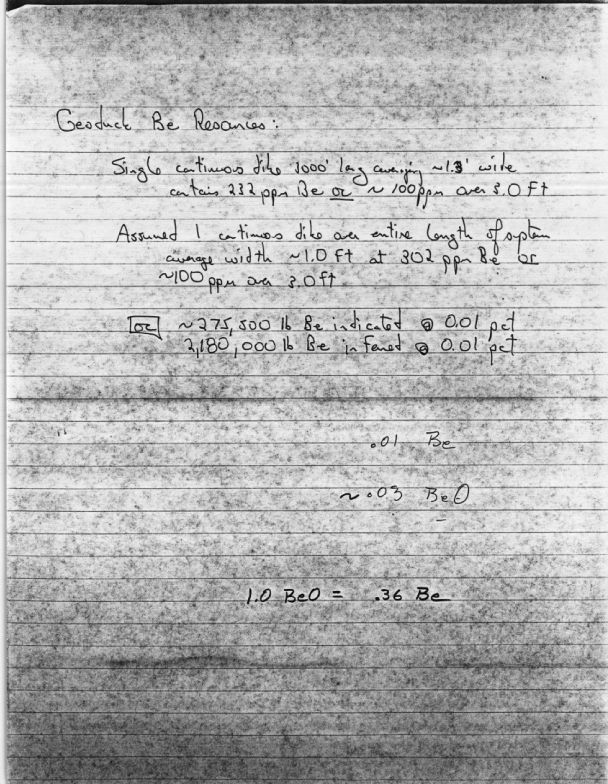 Geoduck Be Resources:
Single continuous dike 3000' long averaging ~1.3' wide
contain 232 ppm Be or ~100 ppm over 3.0 ft
Assumed 1 continuous dike over entire length of system
average width ~1.0 ft at 302 ppm Be or
~100 ppm over 3.0 ft
or ~275,500 lb Be indicated @ 0.01 pct
2,180,000 lb Be inferred @ 0.01 pct
.01 Be
~.03 BeO
1.0 BeO = .36 Be